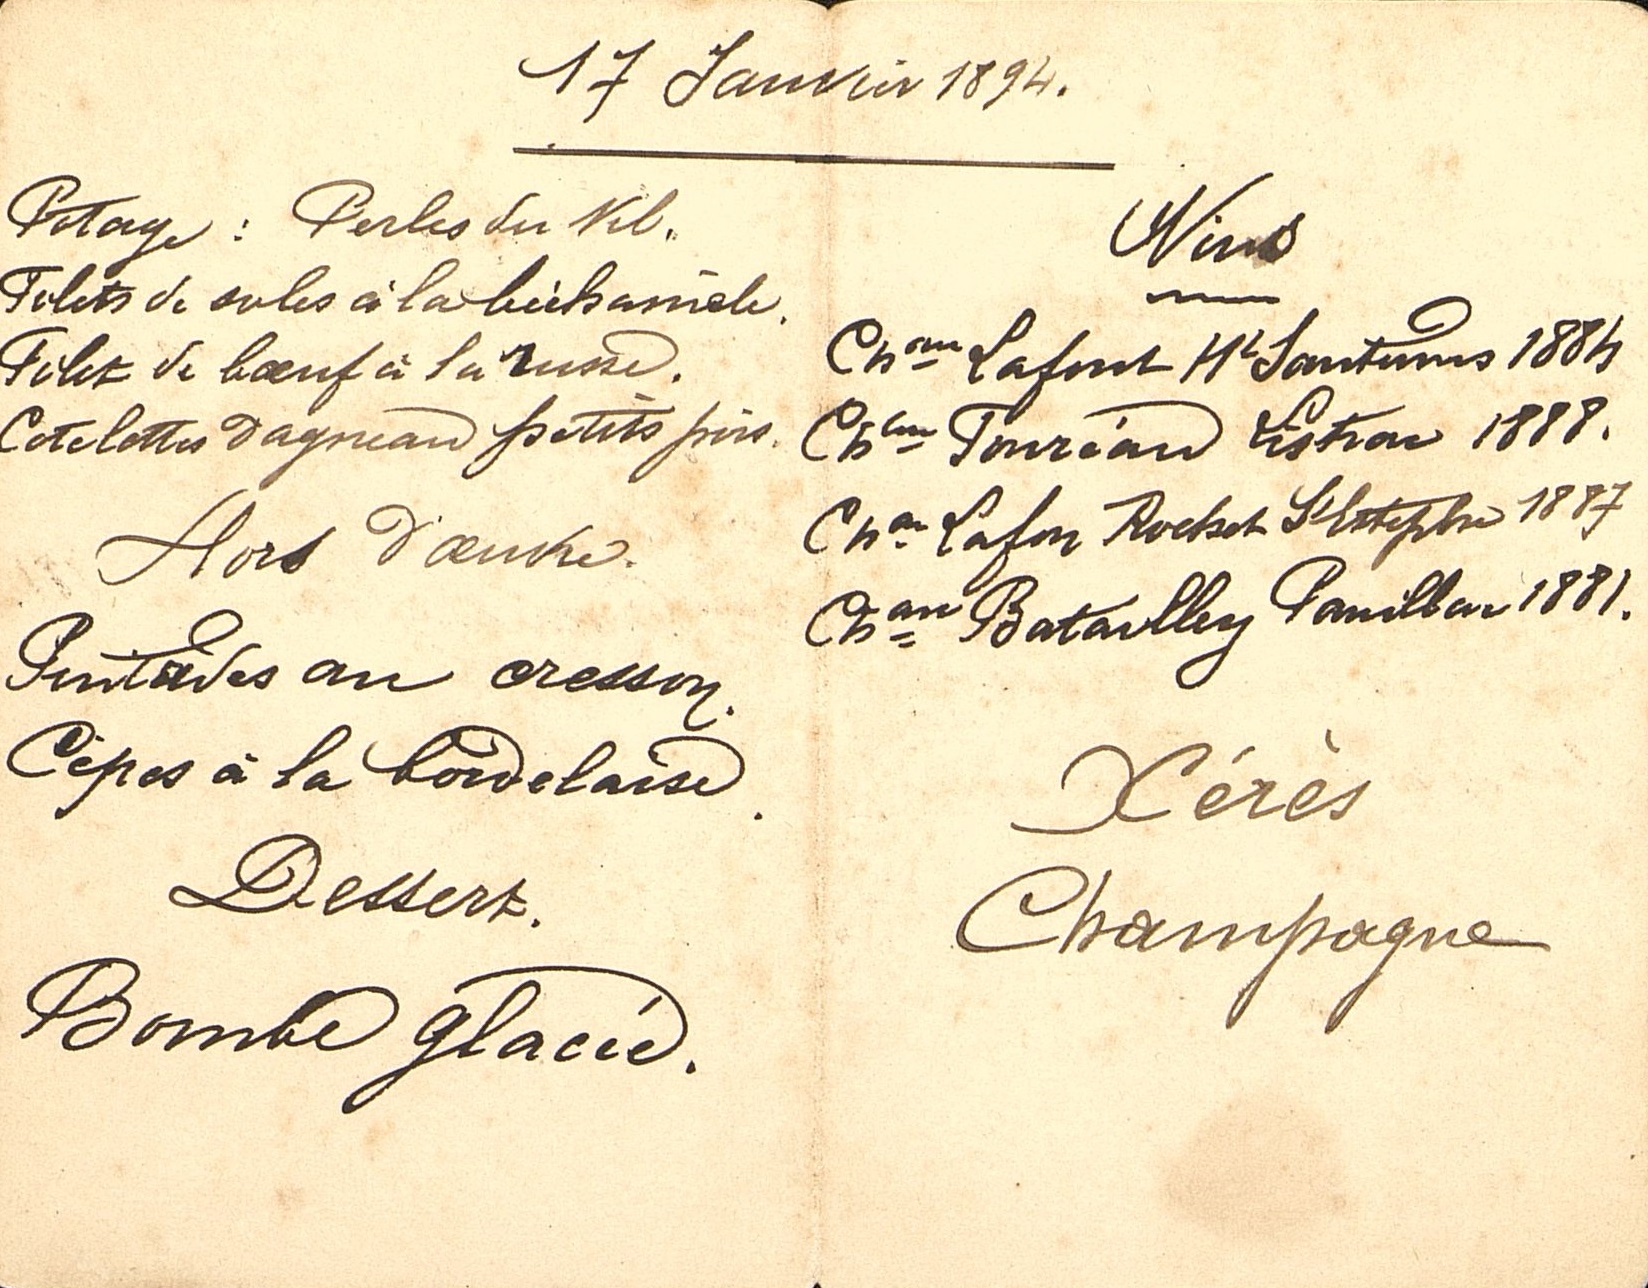 17 Janvier 1894.
Potage : Perles du Nil.
Filets de soles à la béchamele.
Filet de bœuf à la russe.
Cotelettes d'agneau petits pois.
Hors d'œuvre.
Pintades au cresson.
Cèpes à la bordelaise.
Dessert.
Bombe glacée.
Vins
Ch^au Lafont Ht Sauternes 1884
Ch^au Fouréau Listrac 1888.
Ch^au Lafon Rochet St Estèphe 1887
Ch^au Batailley Pauillac 1881.
Xérès
Champagne